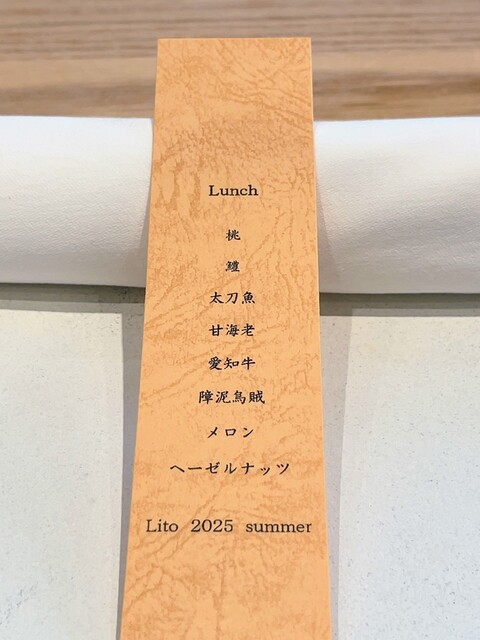 Lunch
桃
鱧
太刀魚
甘海老
愛知牛
障泥烏賊
メロン
ヘーゼルナッツ
Lito 2025 summer